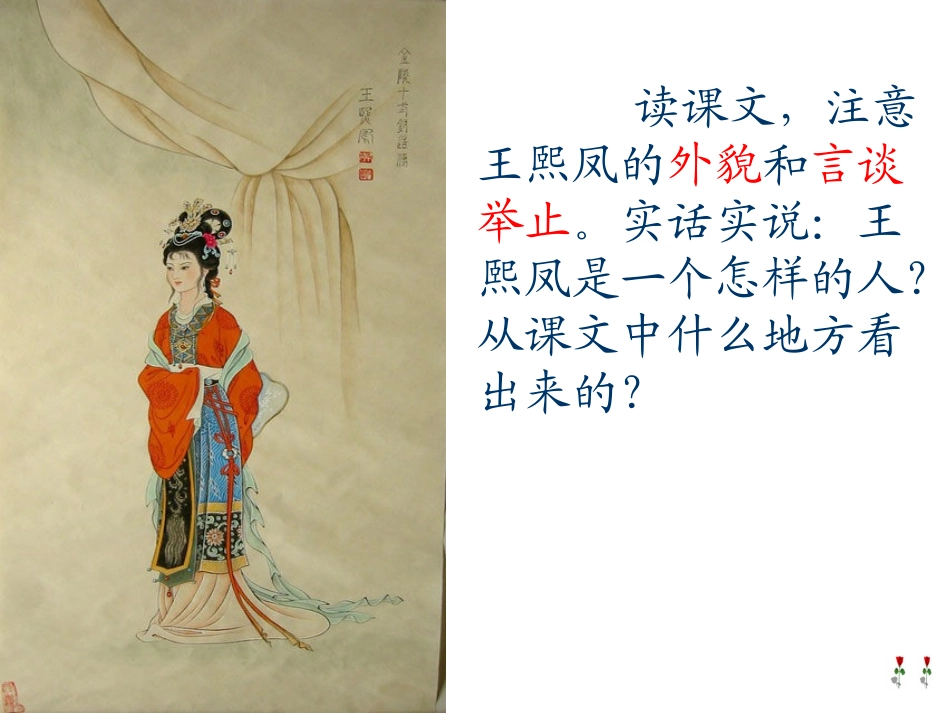 金陵十二釵
王熙鳳
读课文，注意
王熙凤的外貌和言谈
举止。实话实说：王
熙凤是一个怎样的人？
从课文中什么地方看
出来的？